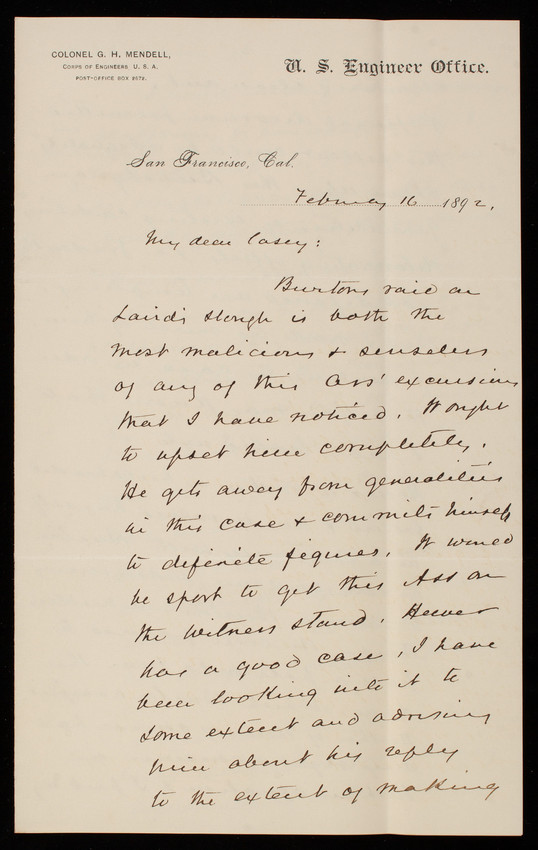 COLONEL G. H. MENDELL,
CORPS OF ENGINEERS U. S. A.
POST-OFFICE BOX
U. S. Engineer Office.
San Francisco, Cal.
February 16 1892.
My dear Casey:
Burtons raid on
Lairds slough is both the
most malicious & senseless
of any of this Ass' excursions
that I have noticed. It ought
to upset him completely.
He gets away from generalities
in this case & commits himself
to definite figures. It would
be sport to get this Ass on
the witness stand. Heuer
has a good case, I have
been looking into it to
some extent and advising
him about his reply
to the extent of making